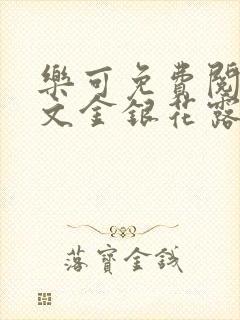 樂可免費閱
文金銀花露
落寶金錢